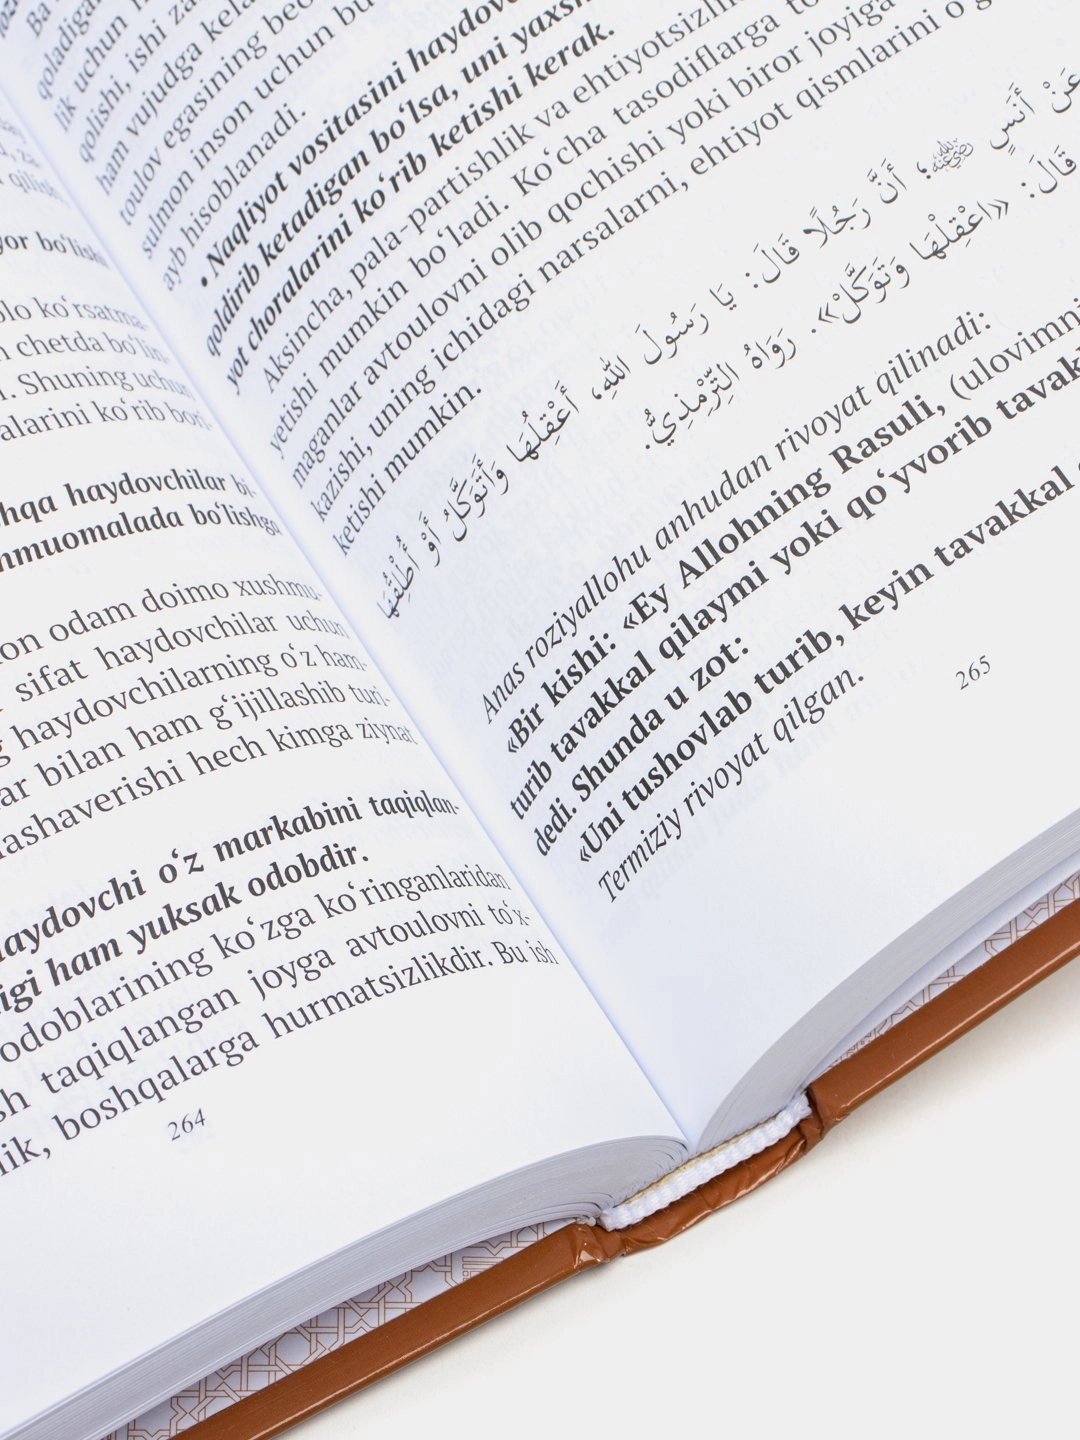 yor bo‘lishi
olo ko‘rsatma-
chetda bo‘lin-
Shuning uchun
alarini ko‘rib bori-
shqa haydovchilar bi-
shmuomalada bo‘lishga
odam doimo xushmu-
sifat haydovchilar uchun
haydovchilarning o‘z ham-
bilan ham g‘ijillashib turi-
lashaverishi hech kimga ziynat
haydovchi o‘z markabini taqiqlan-
ham yuksak odobdir.
odoblarining ko‘zga ko‘ringanlaridan
taqiqlangan joyga avtoulovni to‘x-
lik, boshqalarga hurmatsizlikdir. Bu ish
264
qoladigan
lik uchun
qolishi, ishi
ham vujudga
toulov egasining
sulmon inson uchun bu
ayb hisoblanadi.
• Naqliyot vositasini
qoldirib ketadigan bo‘lsa, uni
yot choralarini ko‘rib ketishi kerak.
Aksincha, pala-partishlik va
yetishi mumkin bo‘ladi. Ko‘cha tasodiflarga
maganlar avtoulovni olib qochishi yoki biror joyiga
kazishi, uning ichidagi narsalarni, ehtiyot qismlarini
ketishi mumkin.
عَنْ أَنَسٍ رَضِيَ اللهُ عَنْهُ، أَنَّ رَجُلًا قَالَ: يَا رَسُولَ اللهِ، أَعْقِلُهَا وَأَتَوَكَّلُ أَوْ أُطْلِقُهَا
قَالَ: «اعْقِلْهَا وَتَوَكَّلْ». رَوَاهُ التِّرْمِذِيُّ.
Anas roziyallohu anhudan rivoyat qilinadi:
«Bir kishi: «Ey Allohning Rasuli, (ulovimni
turib tavakkal qilaymi yoki qo‘yvorib
dedi. Shunda u zot:
«Uni tushovlab turib, keyin tavakkal
Termiziy rivoyat qilgan.
265